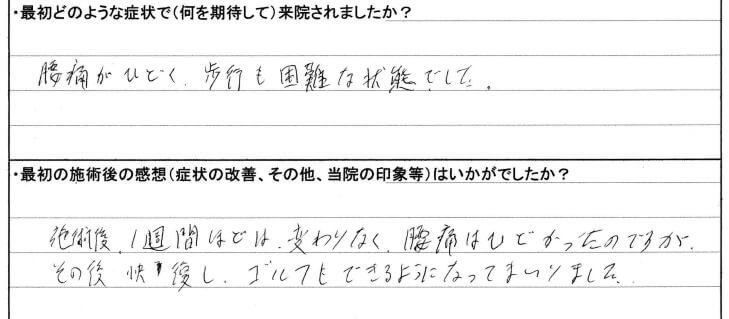 ・最初どのような症状で(何を期待して)来院されましたか?
腰痛がひどく、歩行も困難な状態でした。
・最初の施術後の感想(症状の改善、その他、当院の印象等)はいかがでしたか?
施術後、1週間ほどは、変わりなく、腰痛はひどかったのですが、
その後快復し、ゴルフもできるようになってまいりました。